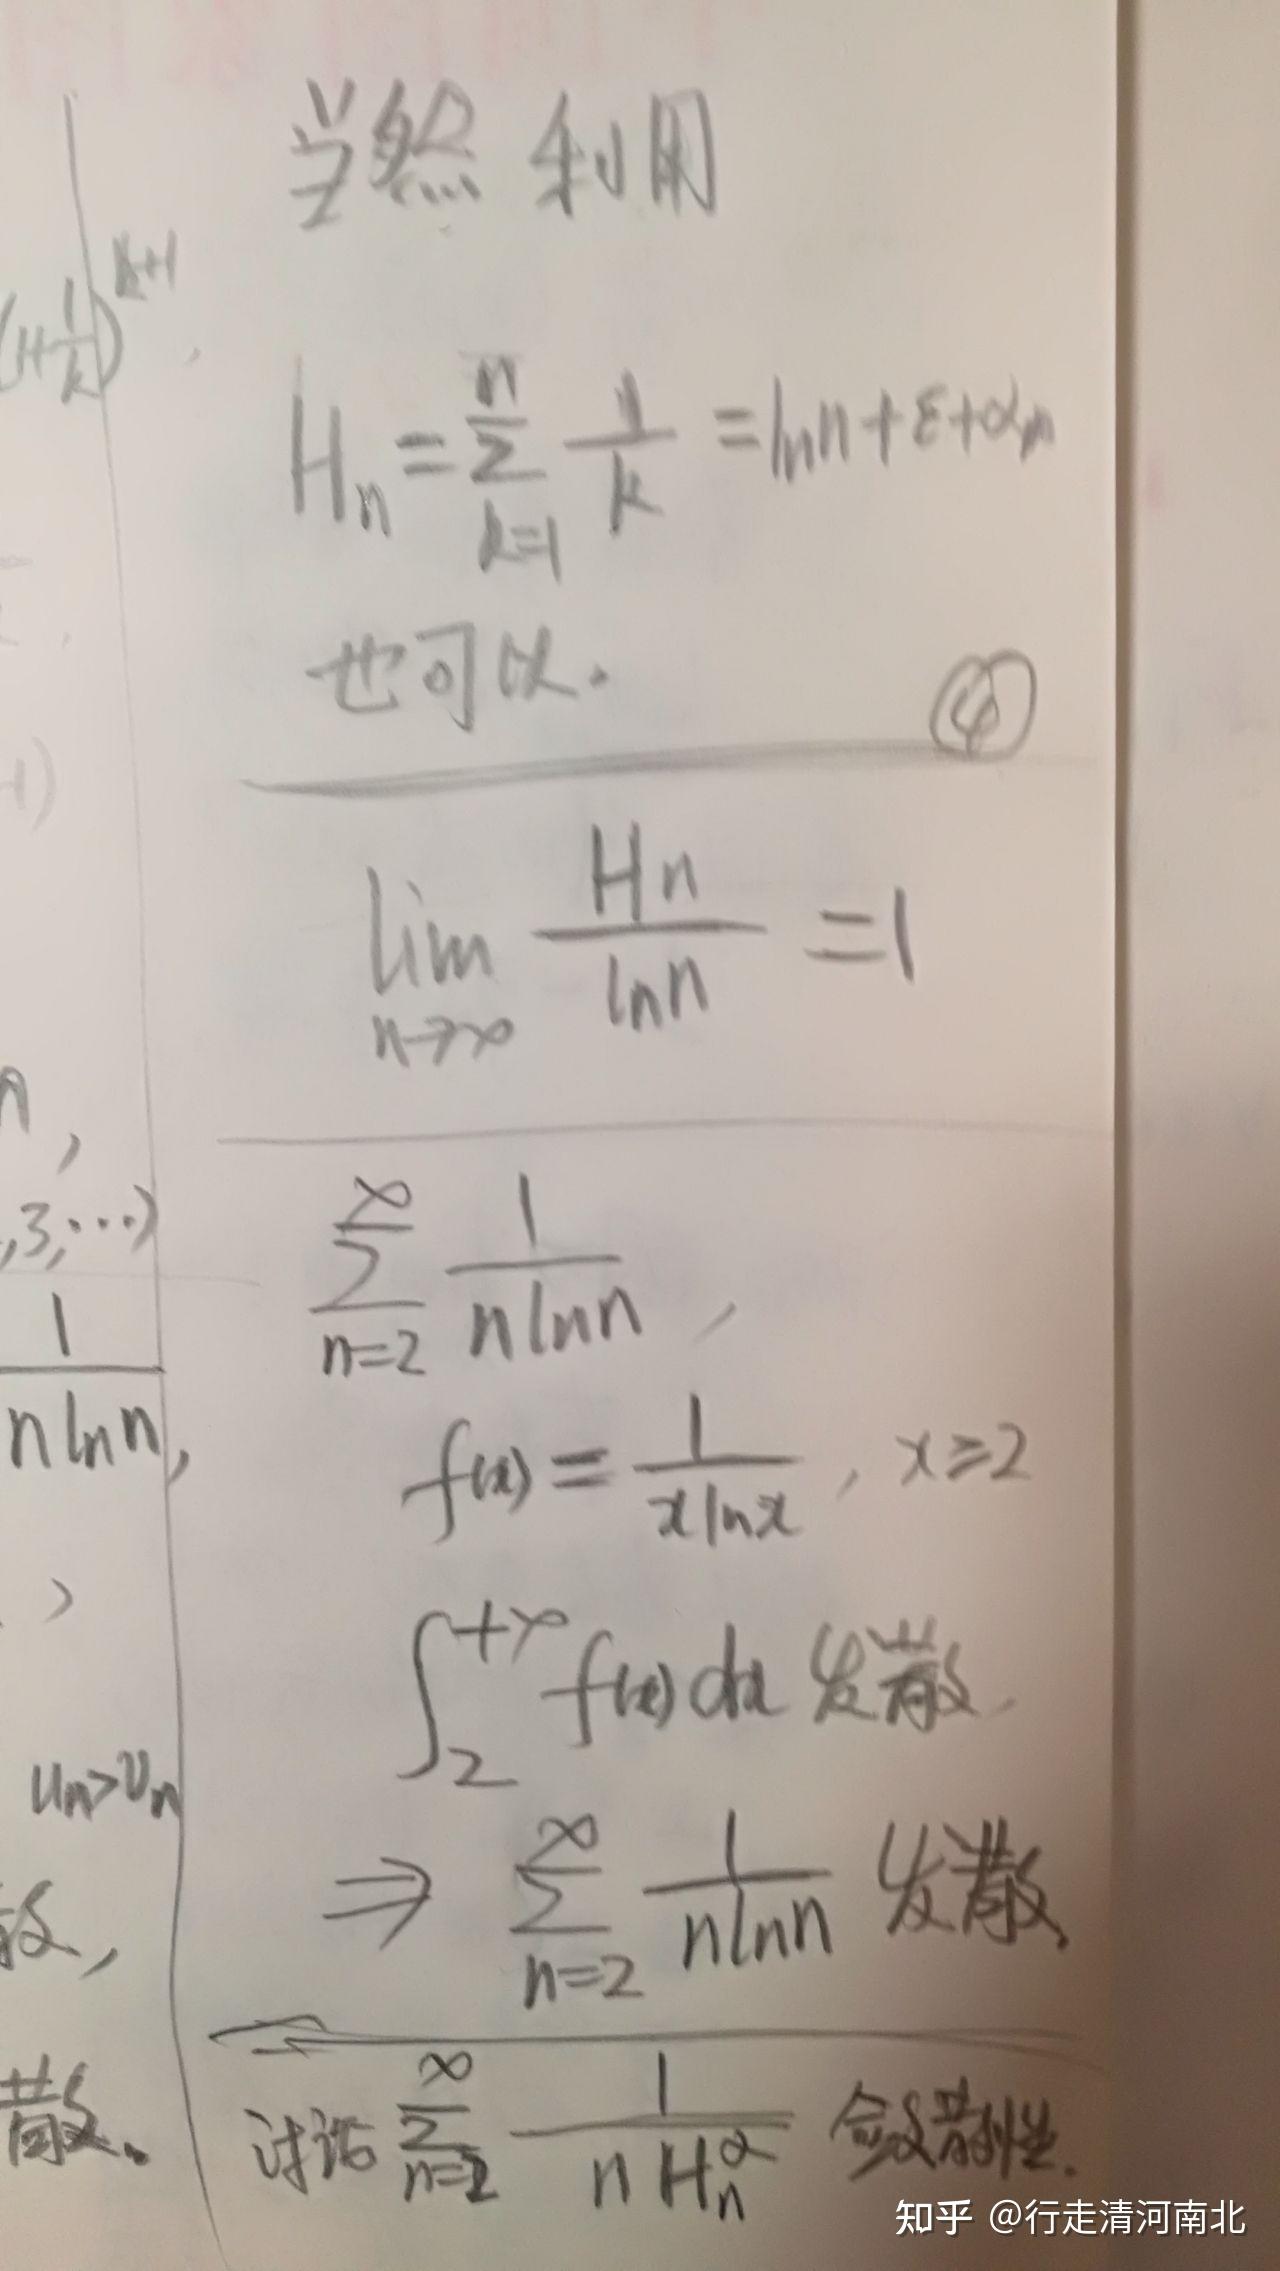 当然利用
(1+1/k)^{k+1},
H_n = \sum_{k=1}^{n} 1/k = ln n + ε + α_n
也可以.
④
-1)
lim_{n→∞} H_n / ln n = 1
n,
,3,…)
\sum_{n=2}^{∞} 1/(n ln n),
1/(n ln n),
f(x) = 1/(x ln x), x≥2
\int_2^{+∞} f(x)dx 发散,
u_n>v_n
⇒ \sum_{n=2}^{∞} 1/(n ln n) 发散.
散,
讨论 \sum_{n=2}^{∞} 1/(n H_n^α) 敛散性.
散.
知乎 @行走清河南北